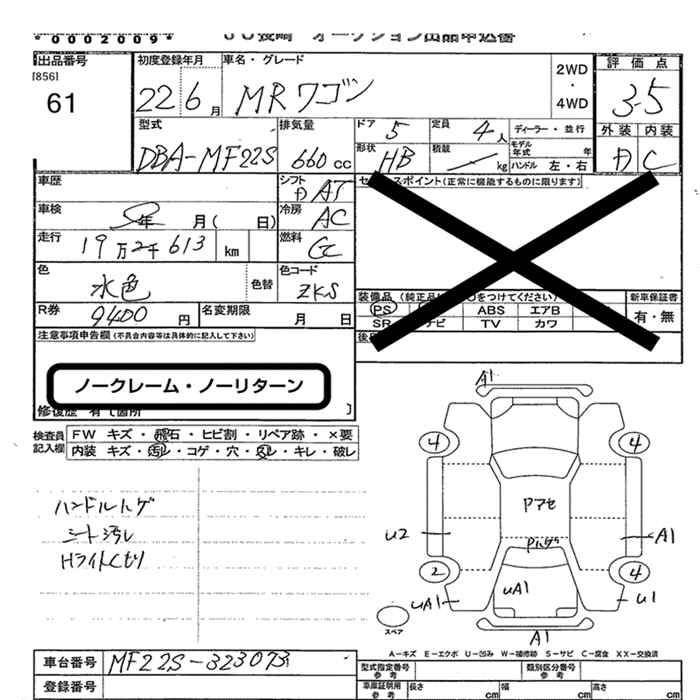 *0002009*
JU長崎 オークション出品申込書
出品番号
[856]
61
初度登録年月
22 6月
車名・グレード
MRワゴン
2WD
・
4WD
評価点
3.5
外装 内装
D C
型式
DBA-MF22S
排気量
660cc
ドア 5
形状 HB
定員 4人
積載 kg
ディーラー・並行
モデル年式 年
ハンドル 左・右
車歴
シフト
AT
車検
年 月( 日)
冷房 AC
走行
19万2千613 km
燃料
色
水色
色替
色コード
ZKS
R券
9400円
名変期限
月 日
セールスポイント(正常に機能するものに限ります)
装備品
をつけてください)
PS
ABS
エアB
SR
ナビ
TV
カワ
新車保証書
有・無
注意事項申告欄(不具合内容等は具体的に記入して下さい)
ノークレーム・ノーリターン
修復歴 有[箇所 ]
検査員
記入欄
FW キズ・飛石・ヒビ割・リペア跡・×要
内装 キズ・汚レ・コゲ・穴・スレ・キレ・破レ
ハンドルハゲ
シート汚レ
Hライトくもり
A1
4
4
Pアセ
Pハゲ
U2
A1
2
4
UA1
UA1
U1
スペア
A1
A-キズ E-エクボ U-凹み W-補修跡 S-サビ C-腐食 XX-交換済
車台番号
MF22S-323073
登録番号
型式指定番号
参考
類別区分番号
参考
車庫証明用
参考
長さ cm
幅 cm
高さ cm